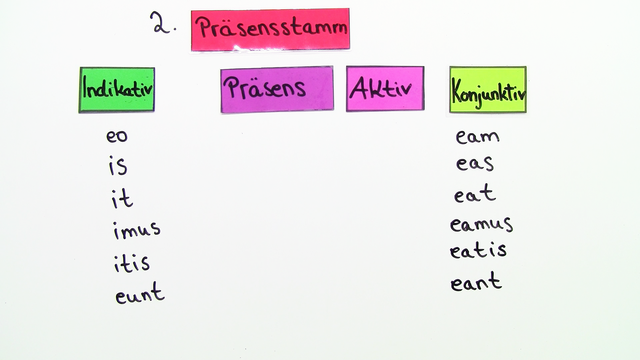 2. Präsensstamm
Indikativ Präsens Aktiv Konjunktiv
eo eam
is eas
it eat
imus eamus
itis eatis
eunt eant